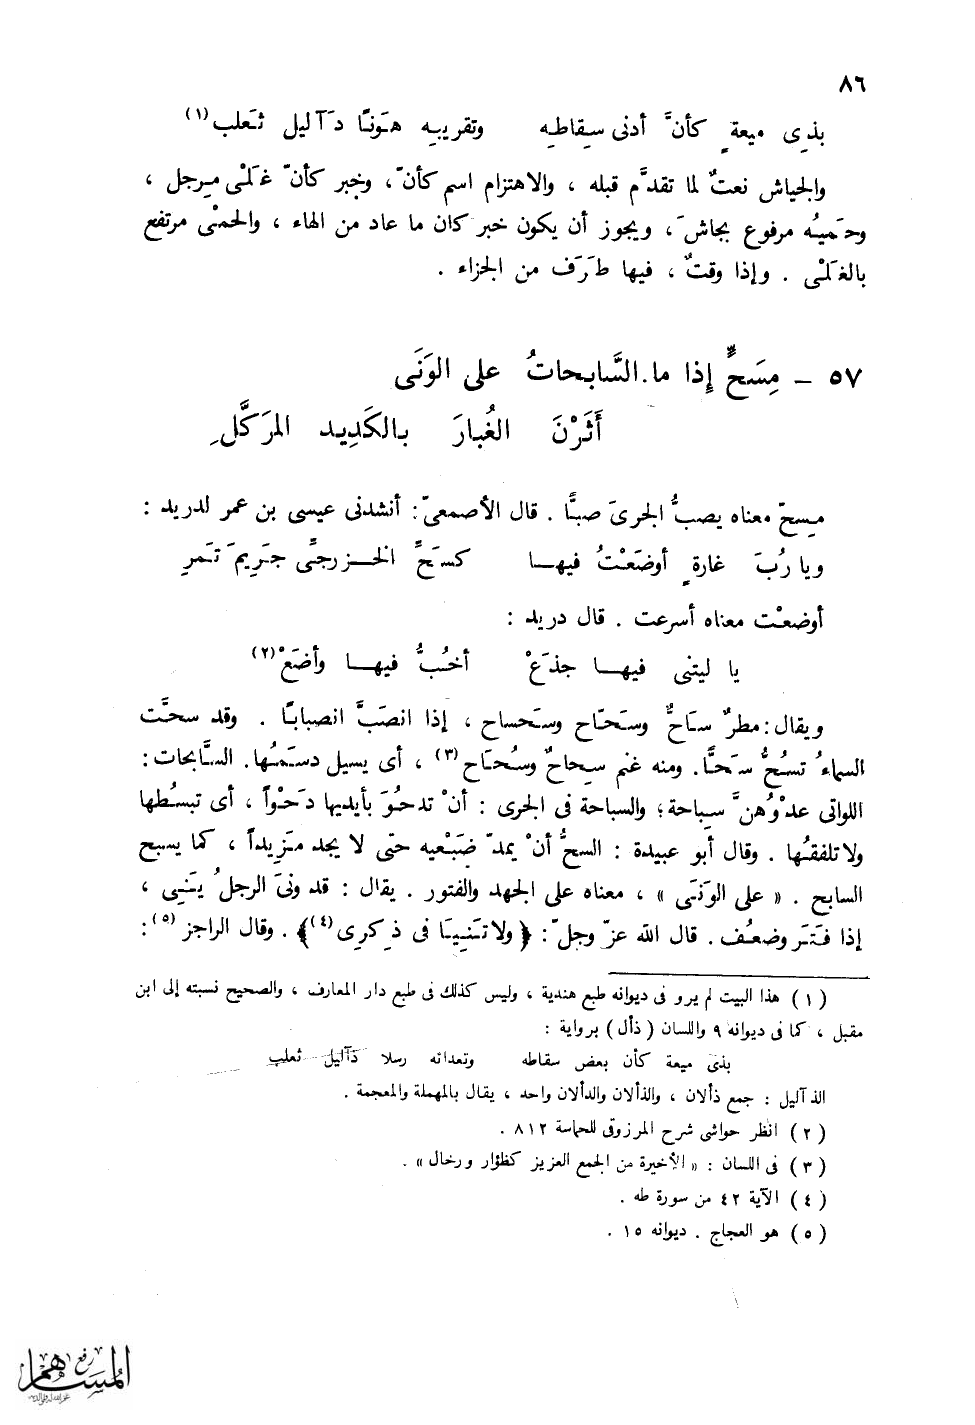 ٨٦
بذِى ميعةٍ كأنَّ أدنى سِقاطهِ وتقريبِه هَونًا دَآليل ثَعلب(١)
والجياش نعتٌ لما تقدَّم قبله ، والاهتزام اسم كأنّ، وخبر كأنّ غَلْى مِرجل ،
وحَميُه مرفوع بجاشَ ، ويجوز أن يكون خبر كان ما عاد من الهاء ، والحمْى مرتفع
بالغَلْى . وإذا وقتٌ ، فيها طَرَف من الجزاء .
٥٧ – مِسَحٍّ إذا ما السَّابحاتُ على الوَنَى
أَثَرْنَ الغُبارَ بالكَدِيد المَركَّلِ
مِسحّ معناه يصبُّ الجرىَ صبًّا . قال الأصمعىّ: أنشدنى عيسى بن عمر لدريد :
ويا رُبَ غارةٍ أوضَعْتُ فيها كسَحِّ الخزرجىِّ جَرِيمَ تَمرِ
أوضعْت معناه أسرعت . قال دريد :
يا ليتنى فيها جذَعْ أخُبُّ فيها وأضَعْ(٢)
ويقال: مطرٌ سَاحٌّ وسَحّاح وسَحساح ، إذا انصَبَّ انصبابًا . وقد سحَّت
السماءُ تسُحُّ سَحًّا. ومنه غنم سِحاحٌ وسُحَاح(٣) ، أى يسيل دسَمُها. السَّابحات:
اللواتى عدْوُهنَّ سِباحة؛ والسباحة فى الجرى : أنْ تدحُوَ بأيديها دَحْوًا ، أى تبسُطها
ولا تلفقُها . وقال أبو عبيدة : السحُّ أنْ يمدّ ضَبْعيه حتى لا يجد مَزيداً ، كما يسبح
السابح . « على الوَنَى » ، معناه على الجهد والفتور . يقال : قد ونىَ الرجلُ يَنِى ،
إذا فَتَر وضعُف. قال الله عزّ وجلّ: ﴿ ولا تَنِيَا فى ذكرِى(٤)﴾ . وقال الراجز(٥):
(١) هذا البيت لم يرو فى ديوانه طبع هندية ، وليس كذلك فى طبع دار المعارف ، والصحيح نسبته إلى ابن
مقبل ، كما فى ديوانه ٩ واللسان (ذأل) برواية :
بذى ميعة كأن بعض سقاطه وتعدائه رسلا ذآليل ثعلب
الذآليل : جمع ذألان ، والذألان والدألان واحد ، يقال بالمهملة والمعجمة .
(٢) انظر حواشى شرح المرزوقى للحماسة ٨١٢ .
(٣) فى اللسان : « الأخيرة من الجمع العزيز كظؤار ورخال » .
(٤) الآية ٤٢ من سورة طه .
(٥) هو العجاج . ديوانه ١٥ .